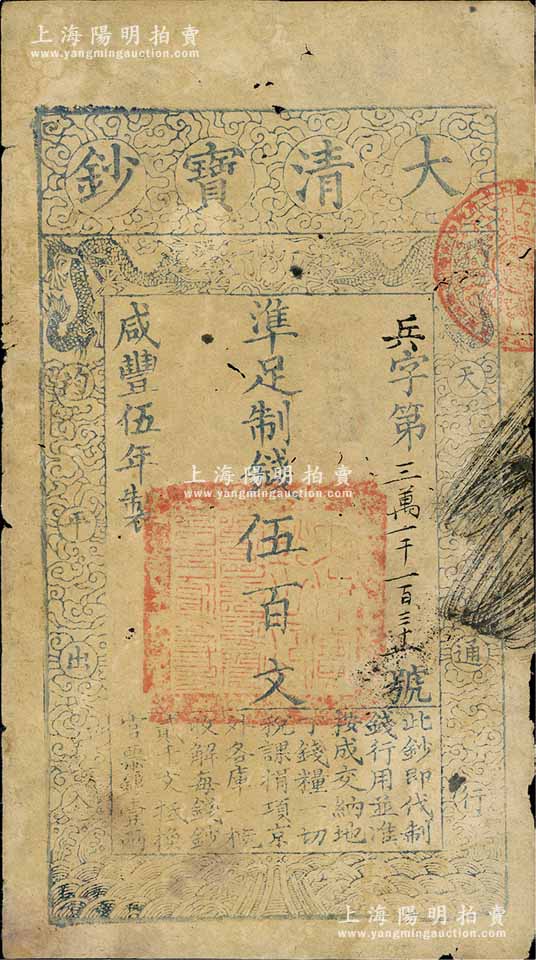 上海陽明拍賣
www.yangmingauction.com
大清寶鈔
天
通行
均平出
兵字第三萬一千一百三十號
準足制錢伍百文
咸豐伍年製
上海陽明拍賣
www.yangmingauction.com
此鈔即代制
錢行用並准
按成交納地
丁錢糧一切
稅課捐項京
外各庫一概
收解每錢鈔
文抵換
官票
上海陽明拍賣
www.yangmingauction.com